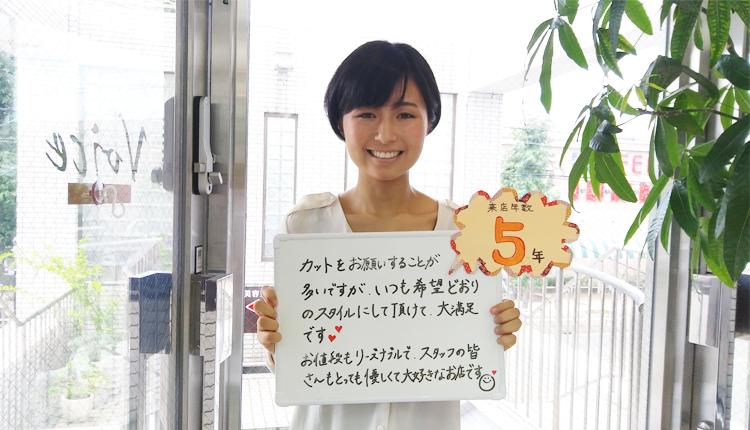 Voice
来店年数
5年
カットをお願いすることが
多いですが、いつも希望どおり
のスタイルにして頂けて、大満足
です♥♥
お値段もリーズナブルで、スタッフの皆
さんもとっても優しくて大好きなお店です
美容